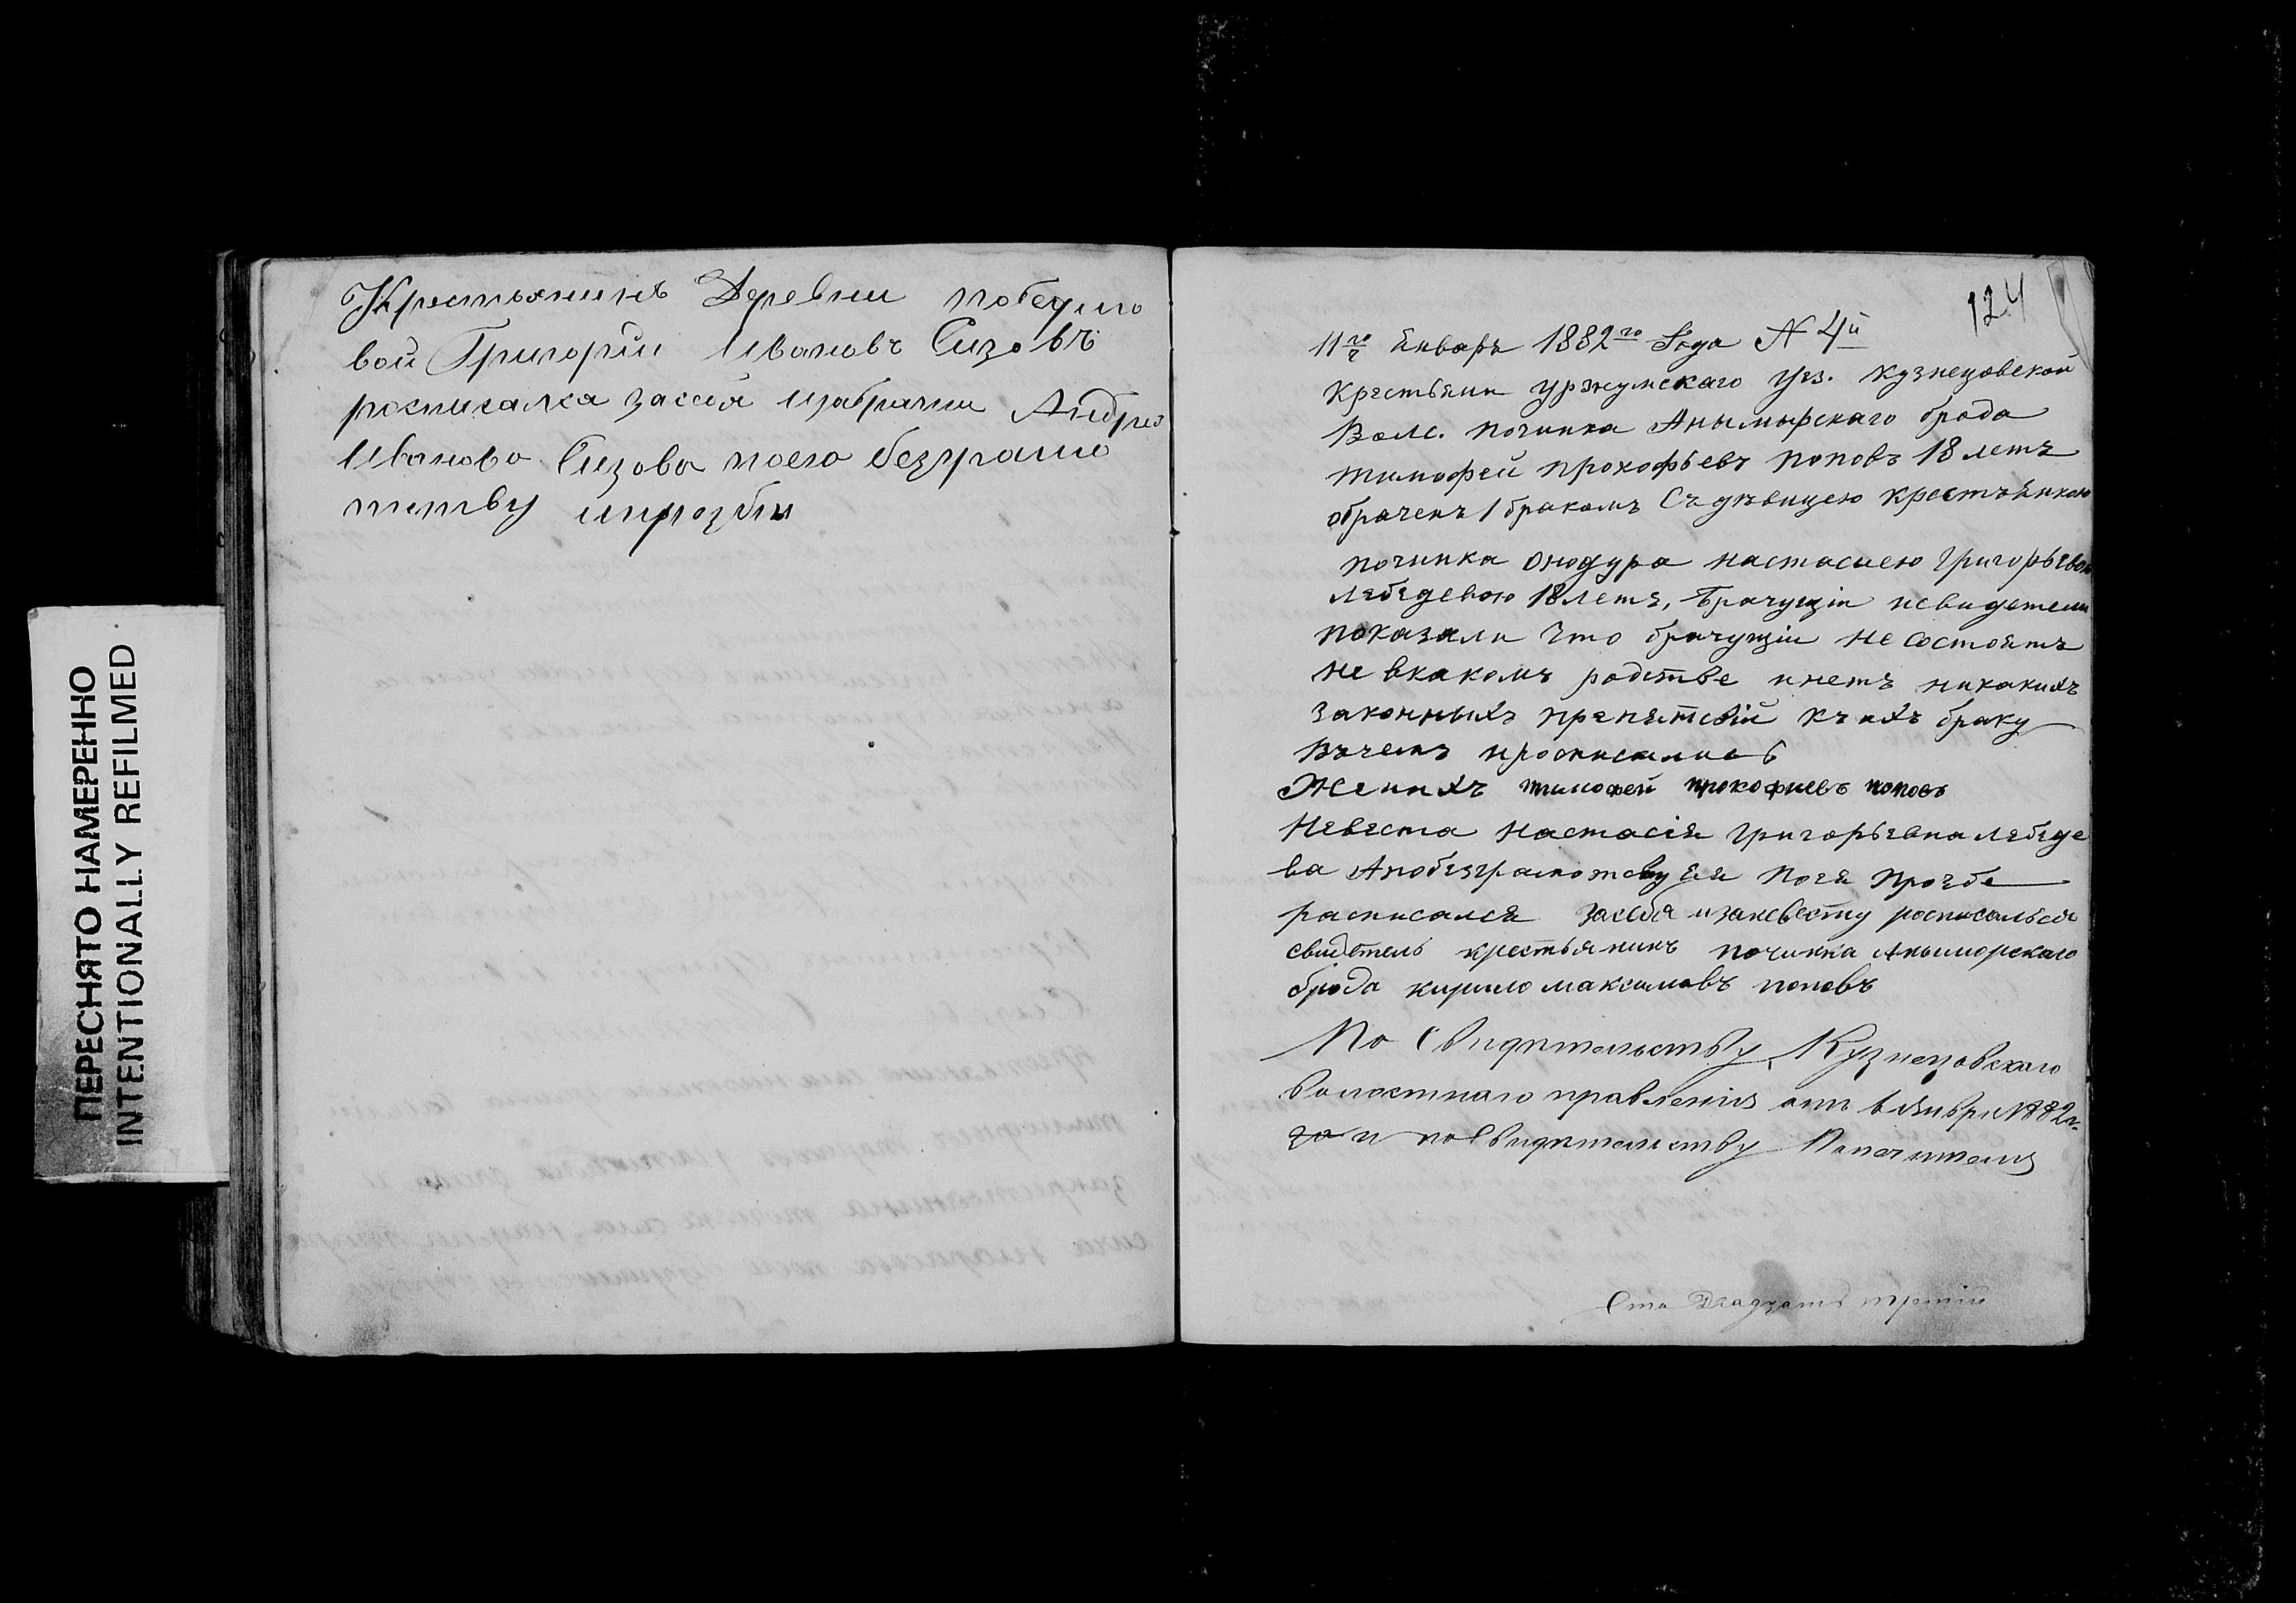 Крестьянинъ Деревни победило
вой Григорйи Ивановъ Сизовъ
росписалса засебя изабрачни Андрея
Иваново Сизова поего безграмо
тству ипрозби
124
11го ч Январъ 1882го Года N 4й
Крестьянин уржумскаго уез. Кузнецовской
Волс. починка Анымырскаго брода
тимофей прокофьевъ поповъ 18 летъ
обраченъ 1 бракомъ Съ девицею крестьянкою
починка Онодура настасиею Григорьевою
лебедевою 18 летъ, Брачущiи исвидетели
показали Что брачущiи не состоятъ
не вкакомъ родстве инетъ никакихъ
законныхъ препятствiй къ ихъ браку
Въчемъ просписались
Женихъ тимофей прокофиевъ поповъ
Невеста настасiя григорьевна лебеде
ва Апобезграмотсву ея Поея прозбе
расписался засебя изаневесту росписалься
свидетель крестьянинъ починка Аныморскаго
брода кирило максимовъ поповъ
По Свидптельству Кузнецовскаго
Волостнаго правленiя отъ 6 Января 1882г.
го и посвидптельству Попечителя
Сто Двадцать третий
ПЕРЕСНЯТО НАМЕРЕННО
INTENTIONALLY REFILMED